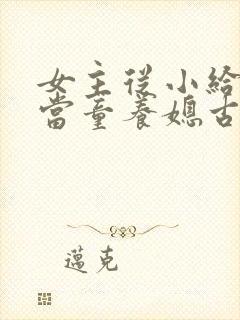 女主從小給
當童養媳古
邁克